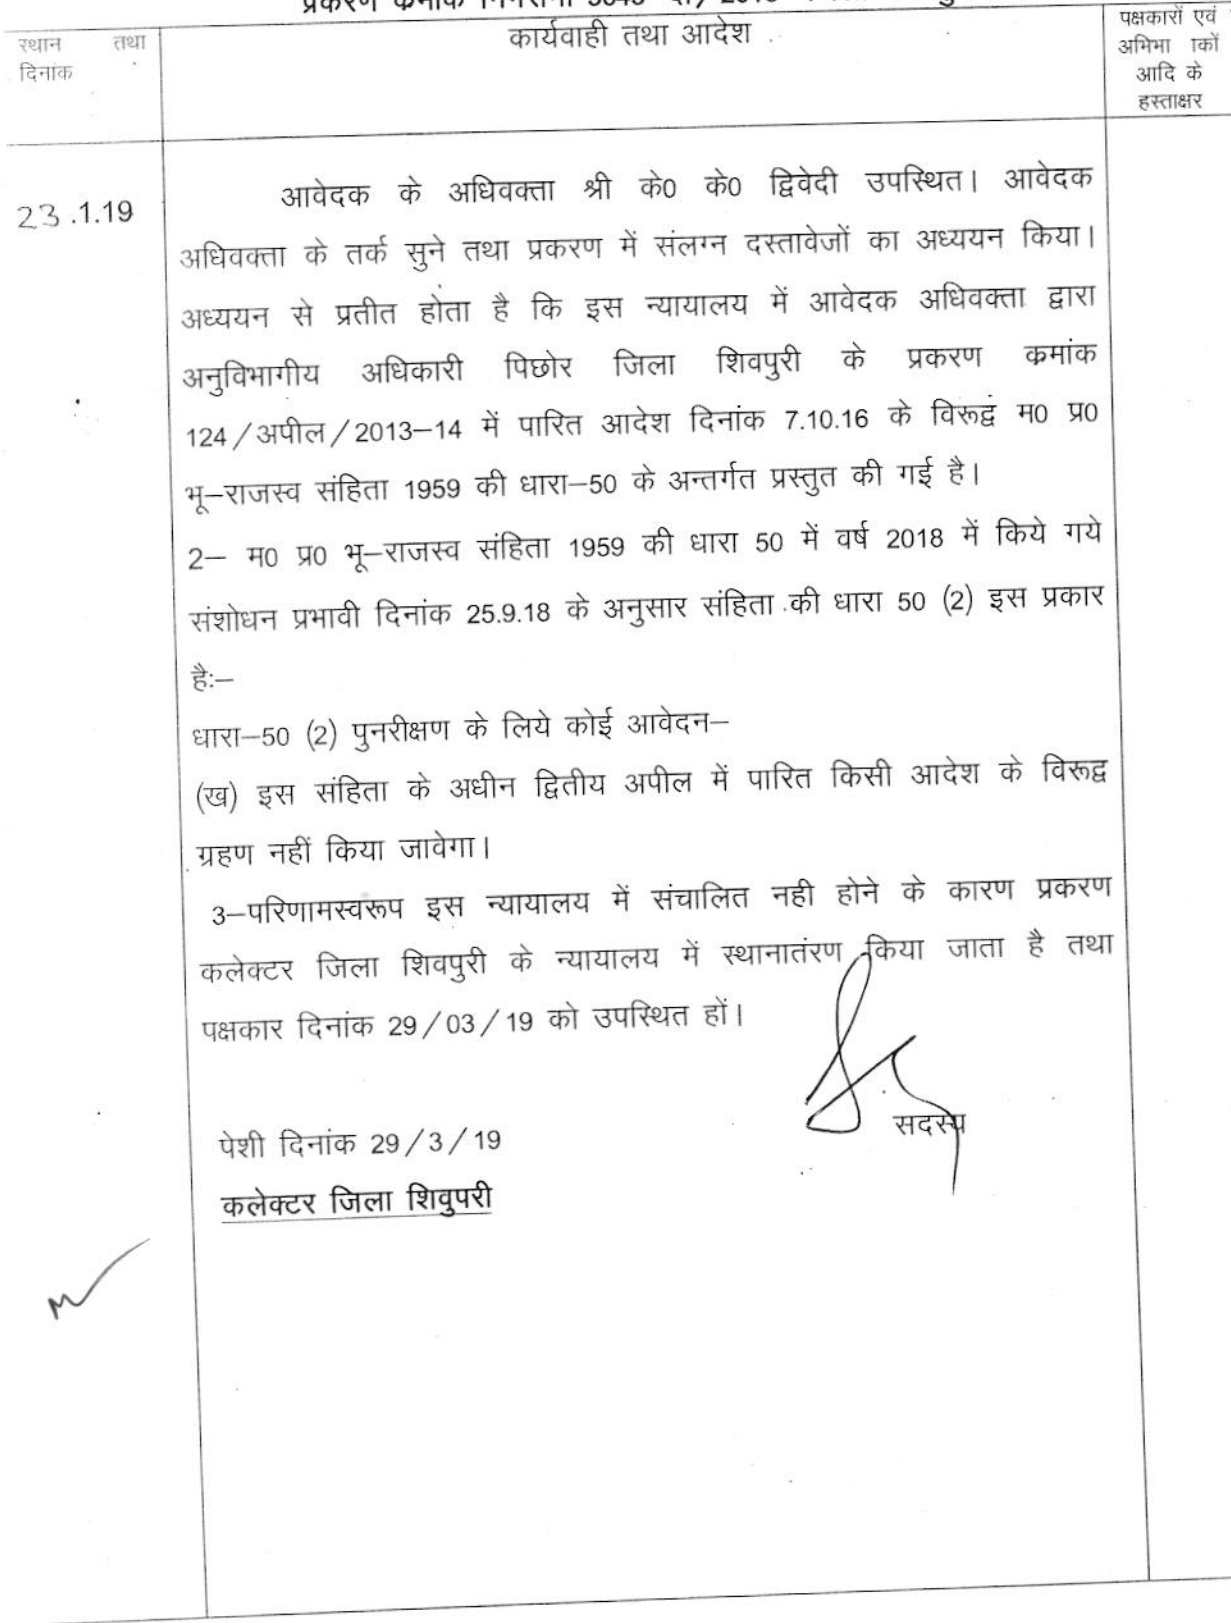 प्रकरण
स्थान तथा
दिनांक
कार्यवाही तथा आदेश
पक्षकारों एवं
अभिभा कों
आदि के
हस्ताक्षर
23.1.19
आवेदक के अधिवक्ता श्री के0 के0 द्विवेदी उपस्थित। आवेदक
अधिवक्ता के तर्क सुने तथा प्रकरण में संलग्न दस्तावेजों का अध्ययन किया।
अध्ययन से प्रतीत होता है कि इस न्यायालय में आवेदक अधिवक्ता द्वारा
अनुविभागीय अधिकारी पिछोर जिला शिवपुरी के प्रकरण कमांक
124/अपील/2013–14 में पारित आदेश दिनांक 7.10.16 के विरूद्वं म0 प्र0
भू–राजस्व संहिता 1959 की धारा–50 के अन्तर्गत प्रस्तुत की गई है।
2– म0 प्र0 भू–राजस्व संहिता 1959 की धारा 50 में वर्ष 2018 में किये गये
संशोधन प्रभावी दिनांक 25.9.18 के अनुसार संहिता की धारा 50 (2) इस प्रकार
है:–
धारा–50 (2) पुनरीक्षण के लिये कोई आवेदन–
(ख) इस संहिता के अधीन द्वितीय अपील में पारित किसी आदेश के विरूद्व
ग्रहण नहीं किया जावेगा।
3–परिणामस्वरूप इस न्यायालय में संचालित नही होने के कारण प्रकरण
कलेक्टर जिला शिवपुरी के न्यायालय में स्थानातंरण किया जाता है तथा
पक्षकार दिनांक 29/03/19 को उपस्थित हों।
सदस्य
पेशी दिनांक 29/3/19
कलेक्टर जिला शिवुपरी